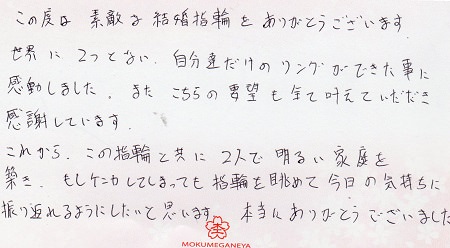 この度は 素敵な 結婚指輪を ありがとうございます
世界に 2つとない、自分達だけの リングができた事に
感動しました。また こちらの要望も全て叶えていただき
感謝しています。
これから、この指輪と共に 2人で 明るい 家庭を
築き、もしケンカしてしまっても 指輪を眺めて今日の気持ちに
振り返れるようにしたいと思います 本当にありがとうございました
MOKUMEGANEYA